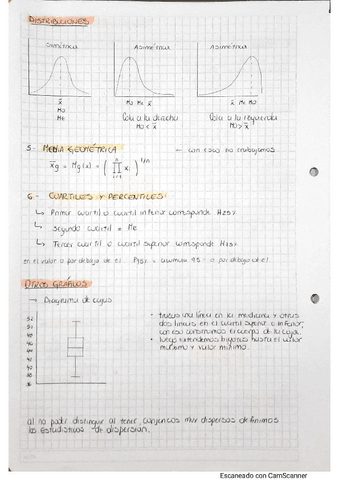 DISTRIBUCIONES
Simétrica
Asimétrica
Asimétrica
x̄
Mo
Me
Mo Me x̄
x̄ Me Mo
Cola a la derecha
Mo < x̄
Cola a la izquierda
Mo > x̄
5 - MEDIA GEOMÉTRICA ← con esto no trabajamos
x̄g = Mg(x) = ( ∏ xi )^1/n
n
i=1
6 - CUARTILES Y PERCENTILES:
↳ Primer cuartil o cuartil inferior corresponde
↳ Segundo cuartil = Me
↳ Tercer cuartil o cuartil superior corresponde
en el valor o por debajo de el. 95 o por debajo de el.
OTROS GRÁFICOS
→ Diagrama de cajas
• trazas una línea en la mediana y otras
dos líneas en el cuartil superior e inferior,
con eso construimos el cuerpo de la caja.
• luego extendemos bigotes hasta el valor
máximo y valor mínimo.
al no poder distinguir al tener conjuntos muy dispersos definimos
los estadísticos de dispersión.
Escaneado con CamScanner